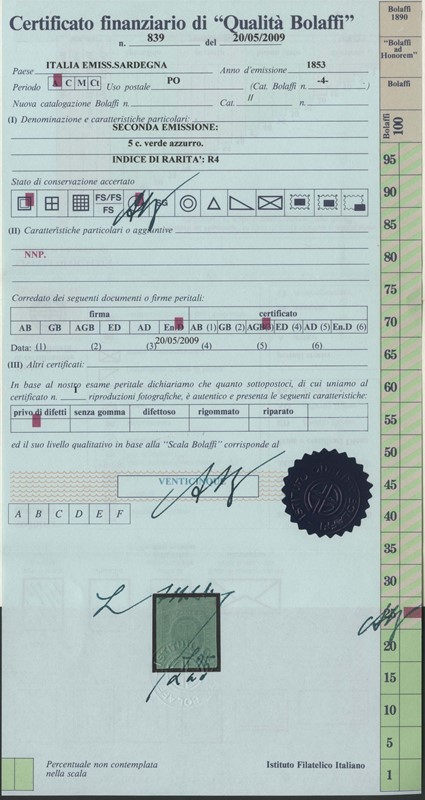 Certificato finanziario di “Qualità Bolaffi”
n. 839 del 20/05/2009
Paese ITALIA EMISS.SARDEGNA Anno d'emissione 1853
Periodo A C M Ct Uso postale PO (Cat. Bolaffi n. -4- )
Nuova catalogazione Bolaffi n. Cat. // n.
(I) Denominazione e caratteristiche particolari:
SECONDA EMISSIONE:
5 c. verde azzurro.
INDICE DI RARITA': R4
Stato di conservazione accertato
FS/FS
FS
SG
(II) Caratteristiche particolari o aggiuntive
NNP.
Corredato dei seguenti documenti o firme peritali:
firma certificato
AB GB AGB ED AD En.D AB (1) GB (2) AGB(3) ED (4) AD (5) En.D (6)
Data: (1) (2) (3) 20/05/2009 (4) (5) (6)
(III) Altri certificati:
In base al nostro esame peritale dichiariamo che quanto sottopostoci, di cui uniamo al
certificato n. 1 riproduzioni fotografiche, è autentico e presenta le seguenti caratteristiche:
privo di difetti senza gomma difettoso rigommato riparato
ed il suo livello qualitativo in base alla “Scala Bolaffi” corrisponde al
VENTICINQUE
A B C D E F
Percentuale non contemplata
nella scala
Istituto Filatelico Italiano
Bolaffi
1890
“Bolaffi
ad
Honorem”
Bolaffi
Bolaffi
100
95
90
85
80
75
70
65
60
55
50
45
40
35
30
20
15
10
5
1